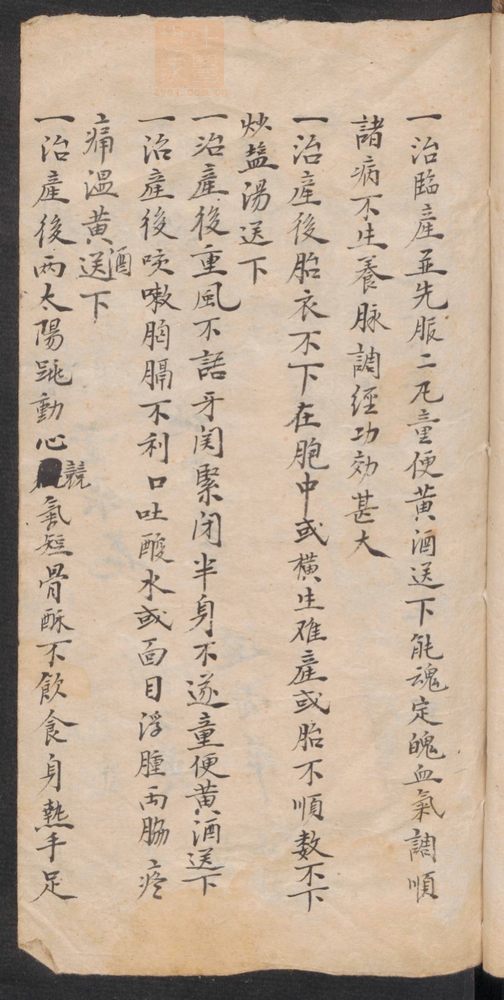 一治臨產並先服二丸童便黄酒送下能魂定魄血氣調順
諸病不生養脉調經功効甚大
一治產後胎衣不下在胞中或横生难產或胎不順数不下
炒盐湯送下
一治產後重風不語牙関緊闭半身不遂童便黄酒送下
一治產後咳嗽胸膈不利口吐酸水或面目浮腫両脇疼
痛温黄酒送下
一治產後两太陽跳動心兢氣短骨酥不飲食身熱手足